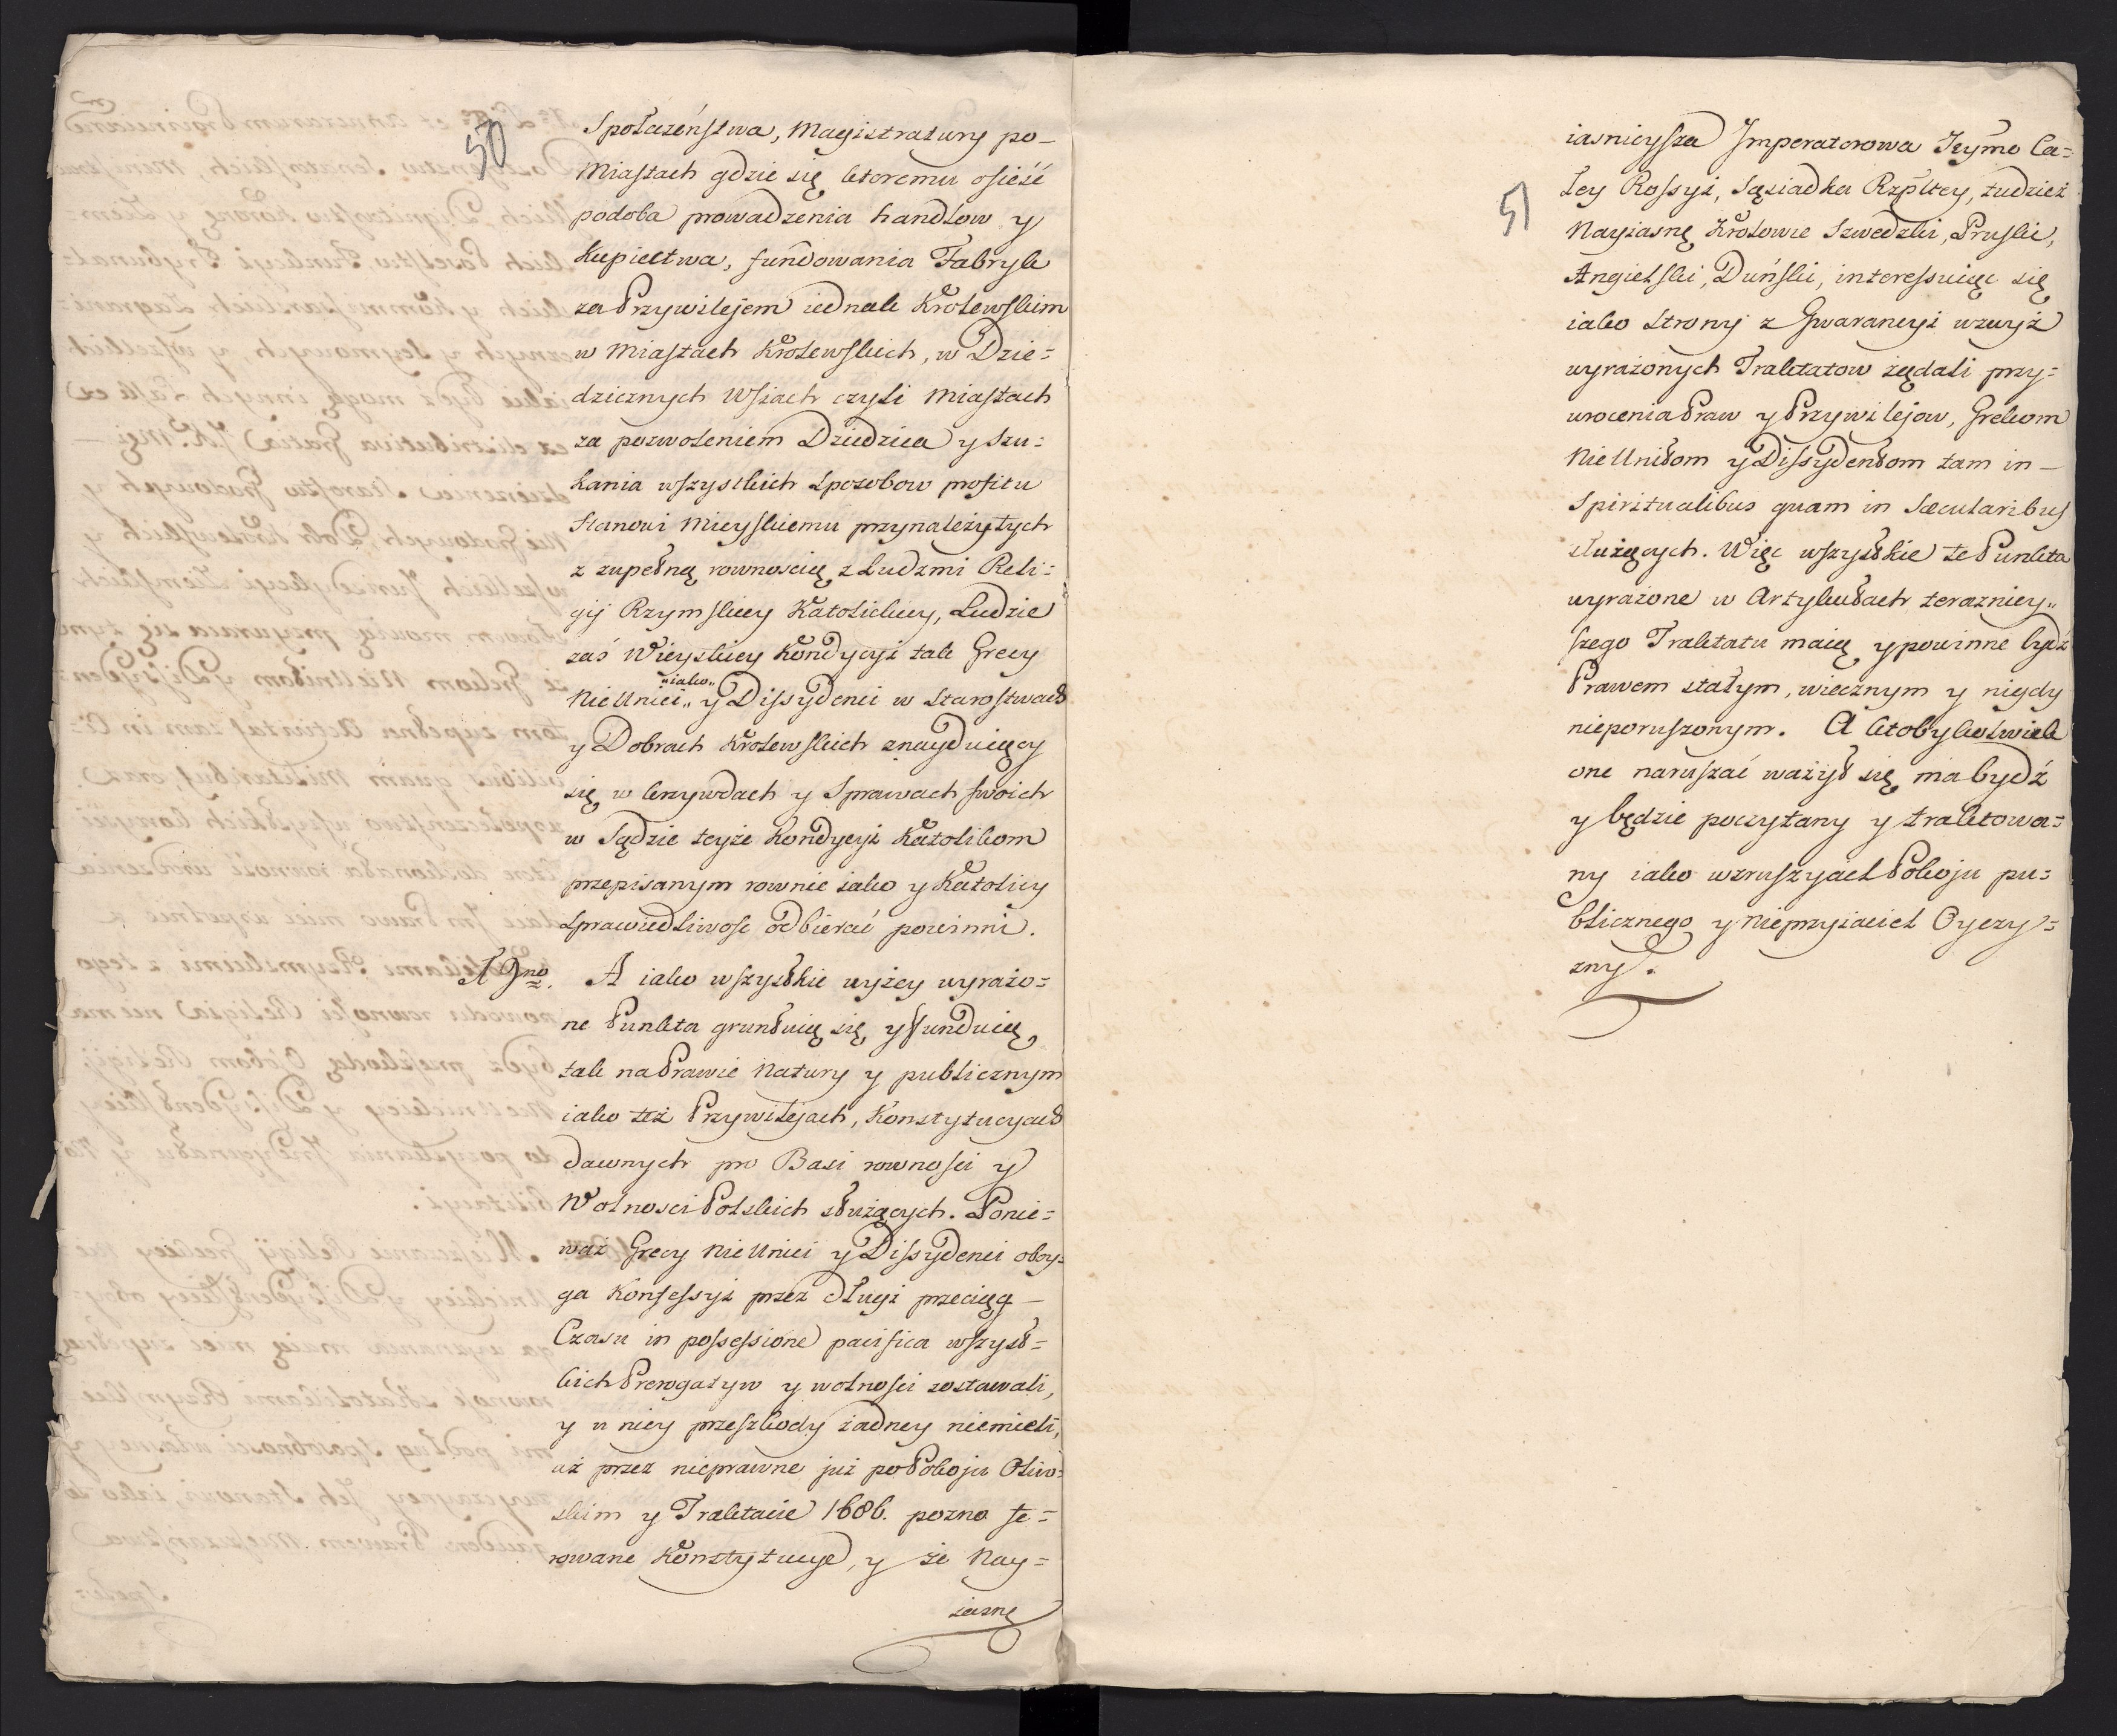 50
Społazeństwa, Magistratury po-
Miastach gdzie się ktoremu osieść
podoba prowadzenia handlow y
kupiectwa, fundowania Fabryk
za Przywilejem iednak Krolewskim
w Miastach Krolewskich, w Dzie=
dzicznych Wsiach czyli Miastach
za pozwoleniem Dziedzica y szu=
kania wszystkich sposobow profitu
stanowi Mieyskiemu przynależytych
z zupełną rownoscią z Ludzmi Reli=
gij Rzymskiey Katolickiey, Ludzie
zaś Wieyskiey Kondycyi tak Grecy
Nie Unici „iako„ y Dissydenci w Starostwach
y Dobrach Krolewskich znayduiący
się w krzywdach y Sprawach swoich
w Sądzie teyże Kondycyi Katolikom
przepisanym rownie iako y Katolicy
Sprawiedliwość odbierać powinni.
19no. A iako wszystkie wyżey wyrażo=
ne Punkta gruntuią się y funduią
tak na Prawie Natury y publicznym
iako też Przywilejach, Konstytucyach
dawnych pro Basi rownosci y
Wolnosci Polskich służących. Ponie=
waż Grecy Nie Unici y Dissydenci oboy=
ga Konfessyi przez długi przeciąg -
Czasu in possessione pacifica wszyst=
kich Prerogatyw y wolnosci zostawali,
y w niey przeszkody żadney niemieli,
aż przez nieprawne już po Pokoju Oliw=
skim y Traktacie 1686. pozno fe=
rowane Konstytucye, y że Nay=
iasną
51
iasnieysza Imperatorowa Jeymc Ca=
łey Rossyi, Sąsiadka Rzpltey, tudzież
Nayiasnę Krolowie Szwedzki, Pruski,
Angielski, Duński, interessuiąc się
iako Strony z Gwarancyi wzwyż
wyrażonych Traktatow żądali przy=
wrocenia Praw y Przywilejow, Grekom
Nie Unitom y Dissydentom tam in -
Spiritualibus quam in Sæcularibus
służących. Więc wszystkie te Punkta
wyrażone w Artykułach teraznieyʺ
szego Traktatu maią y powinne bydź
Prawem stałym, wiecznym y nigdy
nieporuszonym. A ktobykolwiek
one naruszać ważył się ma bydź
y będzie poczytany y traktowa=
ny iako wzruszyciel Pokoju pu=
blicznego y Nieprzyiaciel Oyczy=
zny.